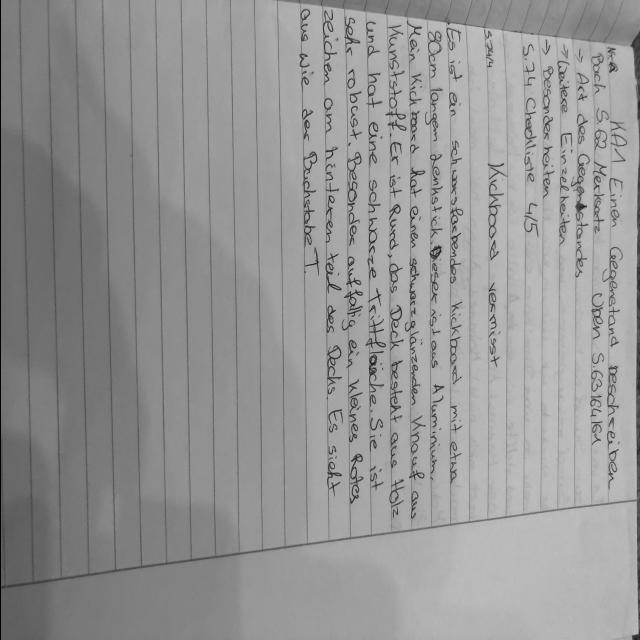 KA1 Einen Gegenstand beschreiben
Buch S.62 Merksatz Üben S.63/64/69
→ Art des Gegenstandes
→ Weitere Einzelheiten
→ Besonderheiten
S.74 Checkliste 4/5
S.73/4
Kickboard vermisst
Es ist ein schwarzfarbendes Kickboard mit etwa
90cm langen Lenkstick. Dieser ist aus Aluminium.
Mein Kickboard hat einen schwarzglänzenden Knauf aus
Kunststoff. Er ist Rund, das Deck besteht aus Holz
und hat eine schwarze Trittfläche. Sie ist
sehr robust. Besonder auffällig ein kleines Rotes
zeichen am hinteren teil des Decks. Es sieht
aus wie der Buchstabe T.